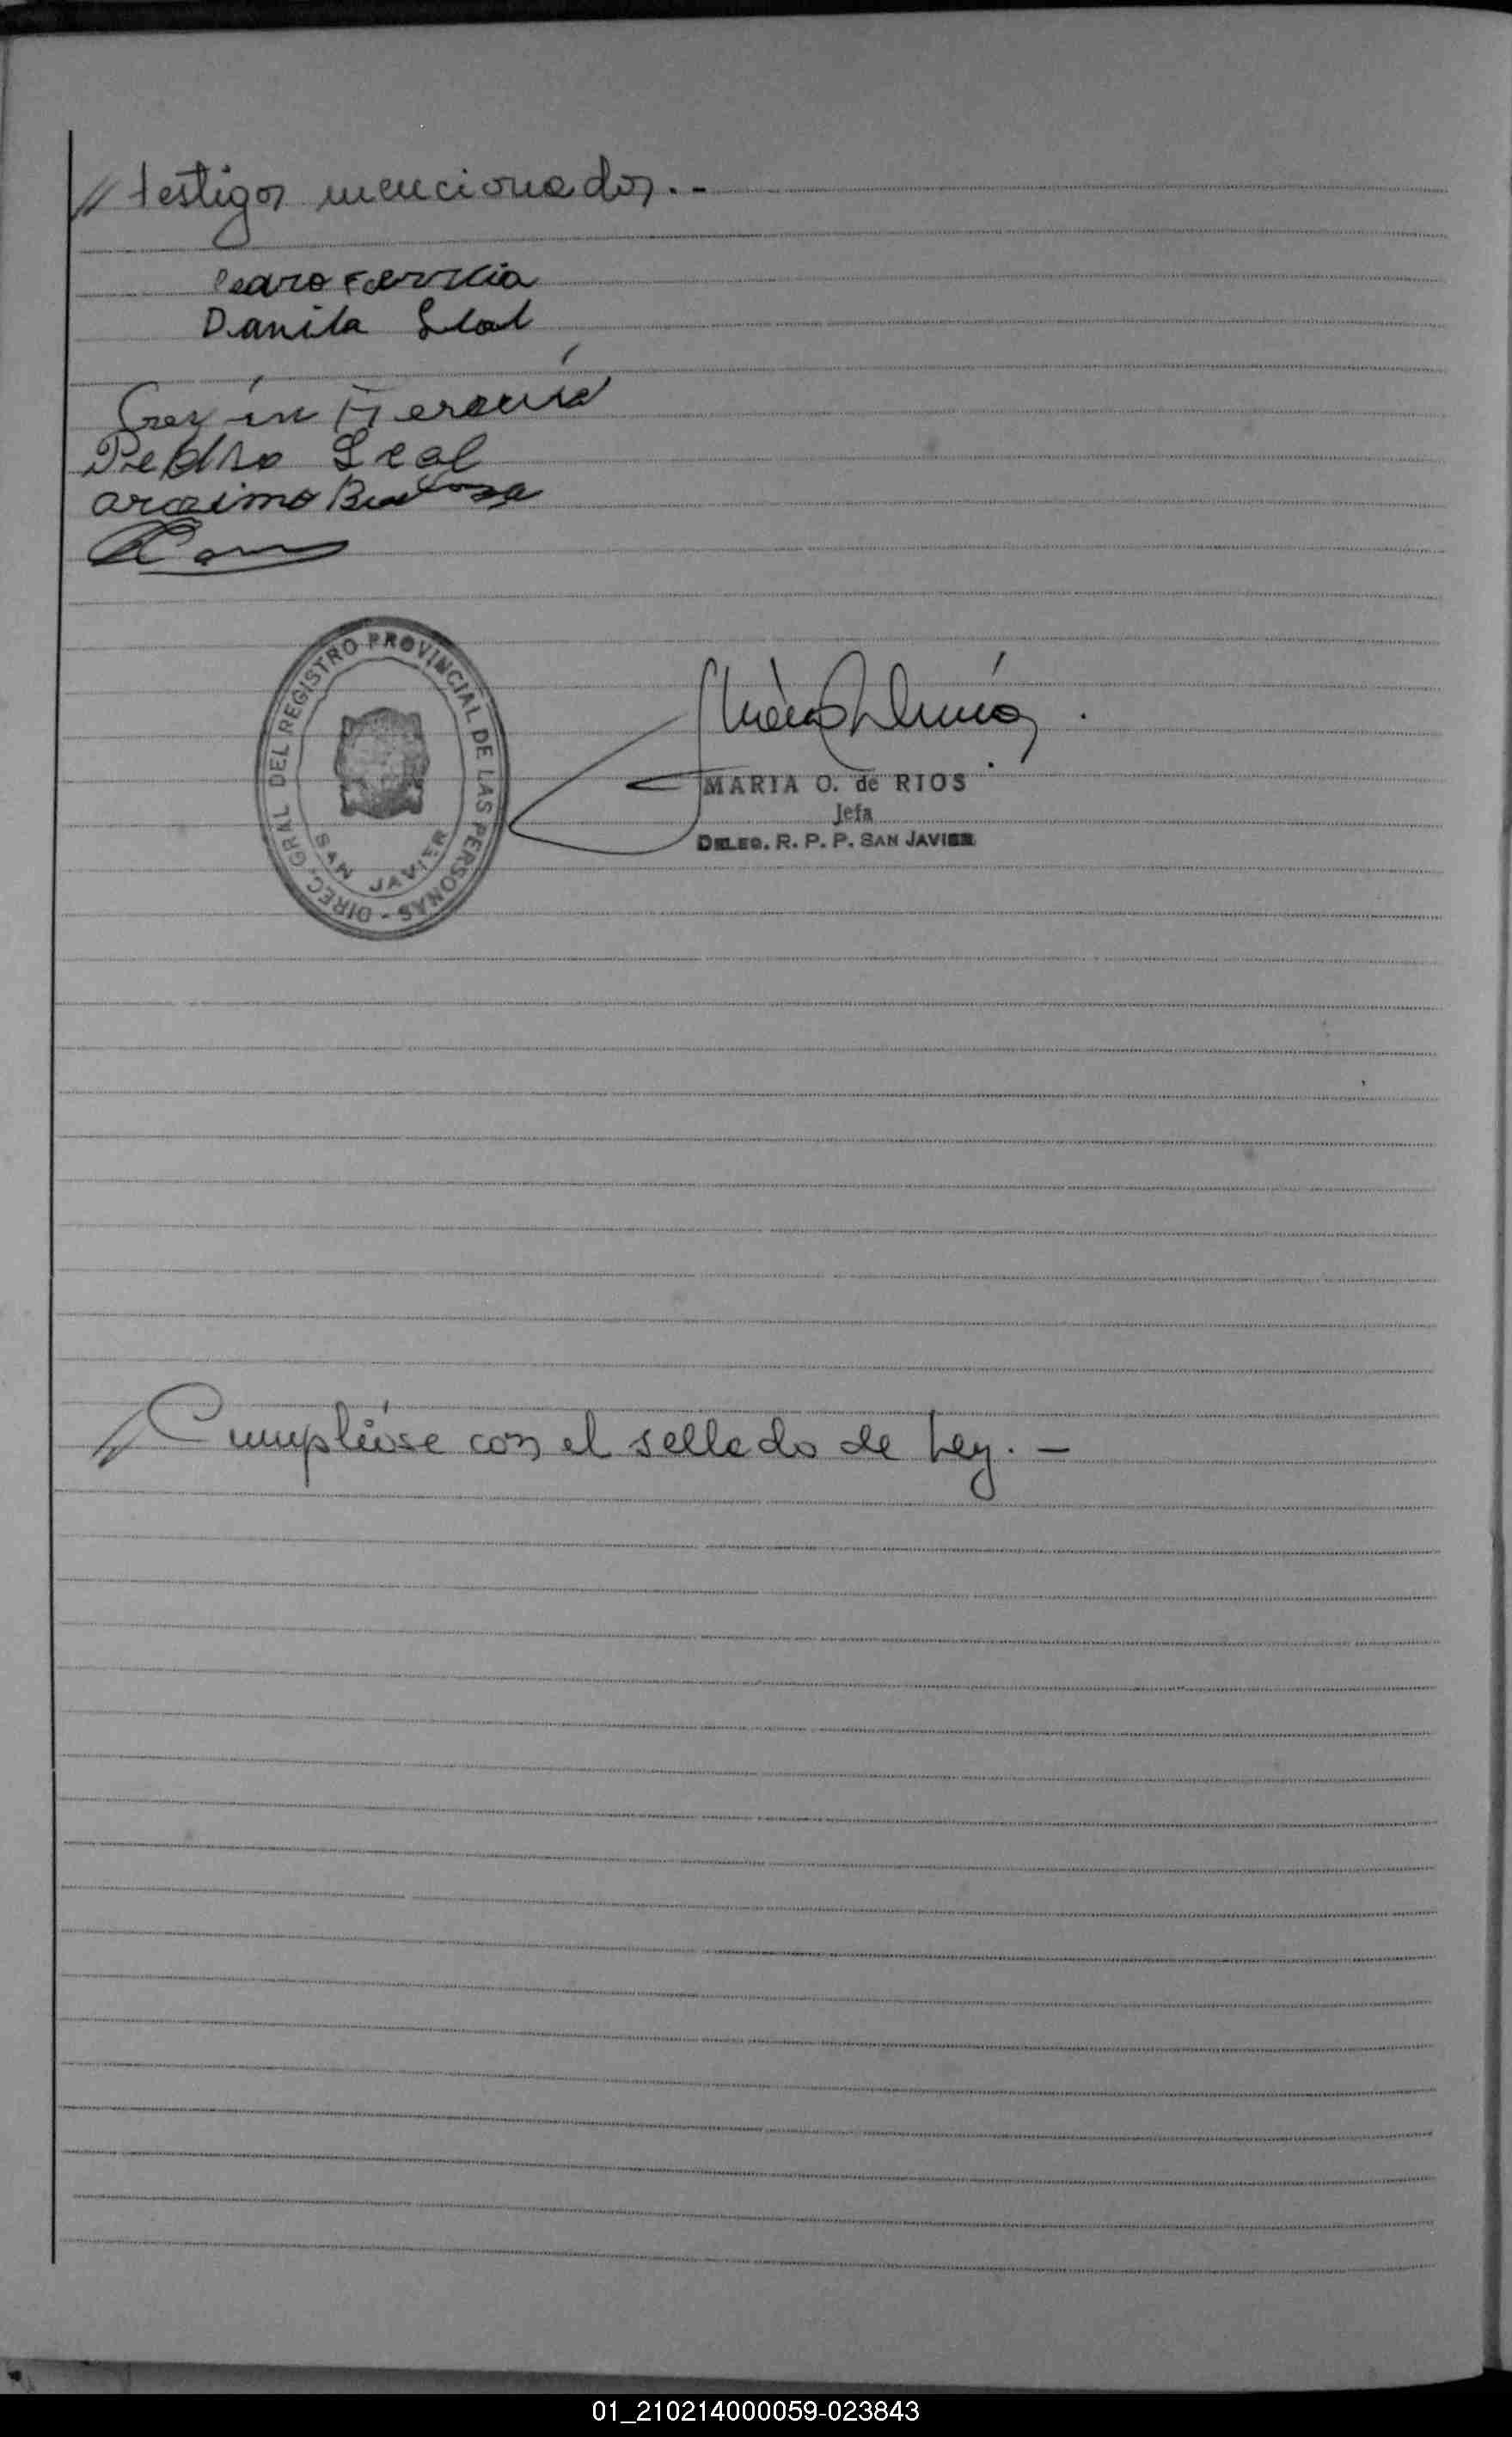 // testigos mencionados.-
Pedro Ferreira
Danila Leal
Ferreira
Pedro Leal
DIREC. GRAL. DEL REGISTRO PROVINCIAL DE LAS PERSONAS -
SAN JAVIER
MARIA O. de RIOS
Jefa
DELEG. R. P. P. SAN JAVIER
// Cumplióse con el sellado de Ley. -
01_210214000059-023843